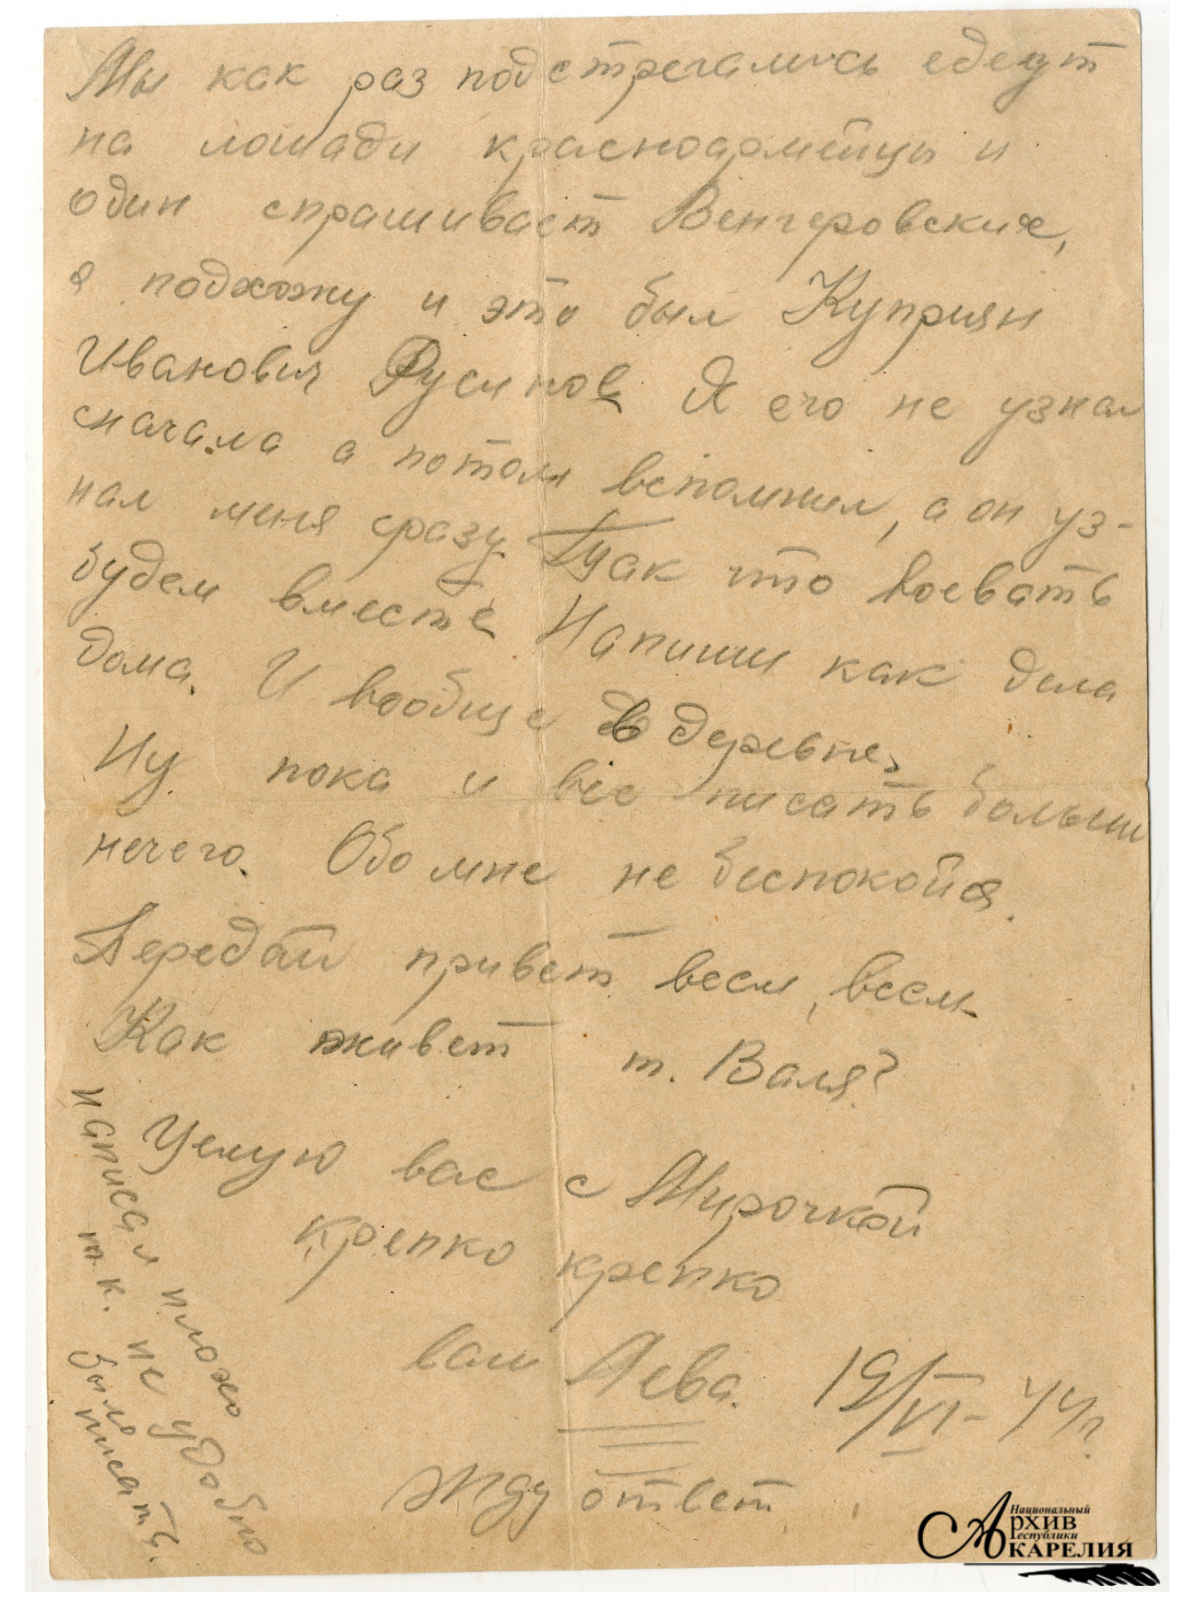 Мы как раз подстречались едеут
на лошади красноармейцы и
один спрашивает Венгеровских,
я подхожу и это был Куприян
Иванович Русинов Я его не узнал
сначала а потом вспомнил, а он уз-
нал меня сразу. Так что воевать
будем вместе Напиши как дела
дома. И вообще в деревне.
Ну пока и все писать больши
нечего. Обо мне не беспокойся.
Передай привет всем, всем.
Как живет т. Валя?
Целую вас с Мирочкой
крепко крепко
ваш Лева. 19/VI-44г.
Жду ответ
написал плохо
т.к. не удобно
было писать.
Национальный
АРХИВ
Республики
КАРЕЛИЯ